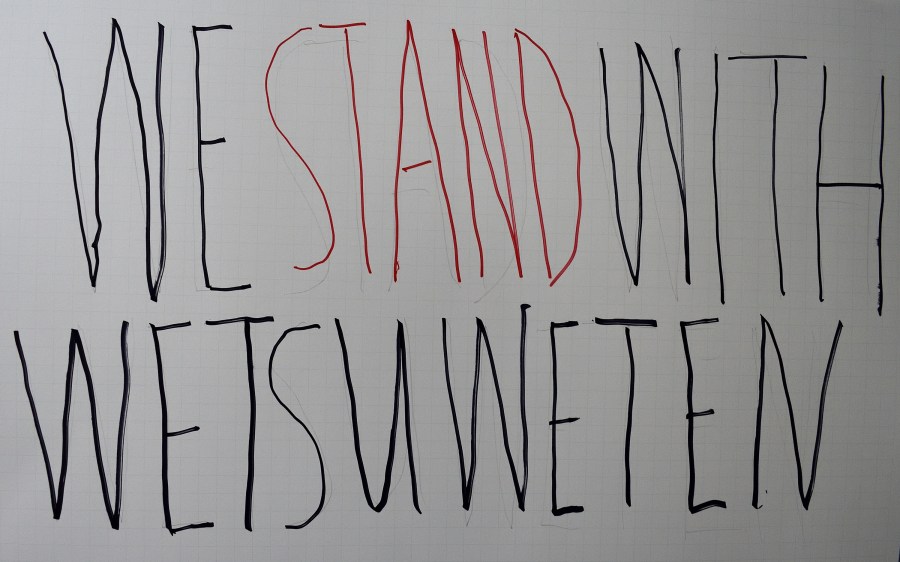 WE STAND WITH
WETSUWETEN